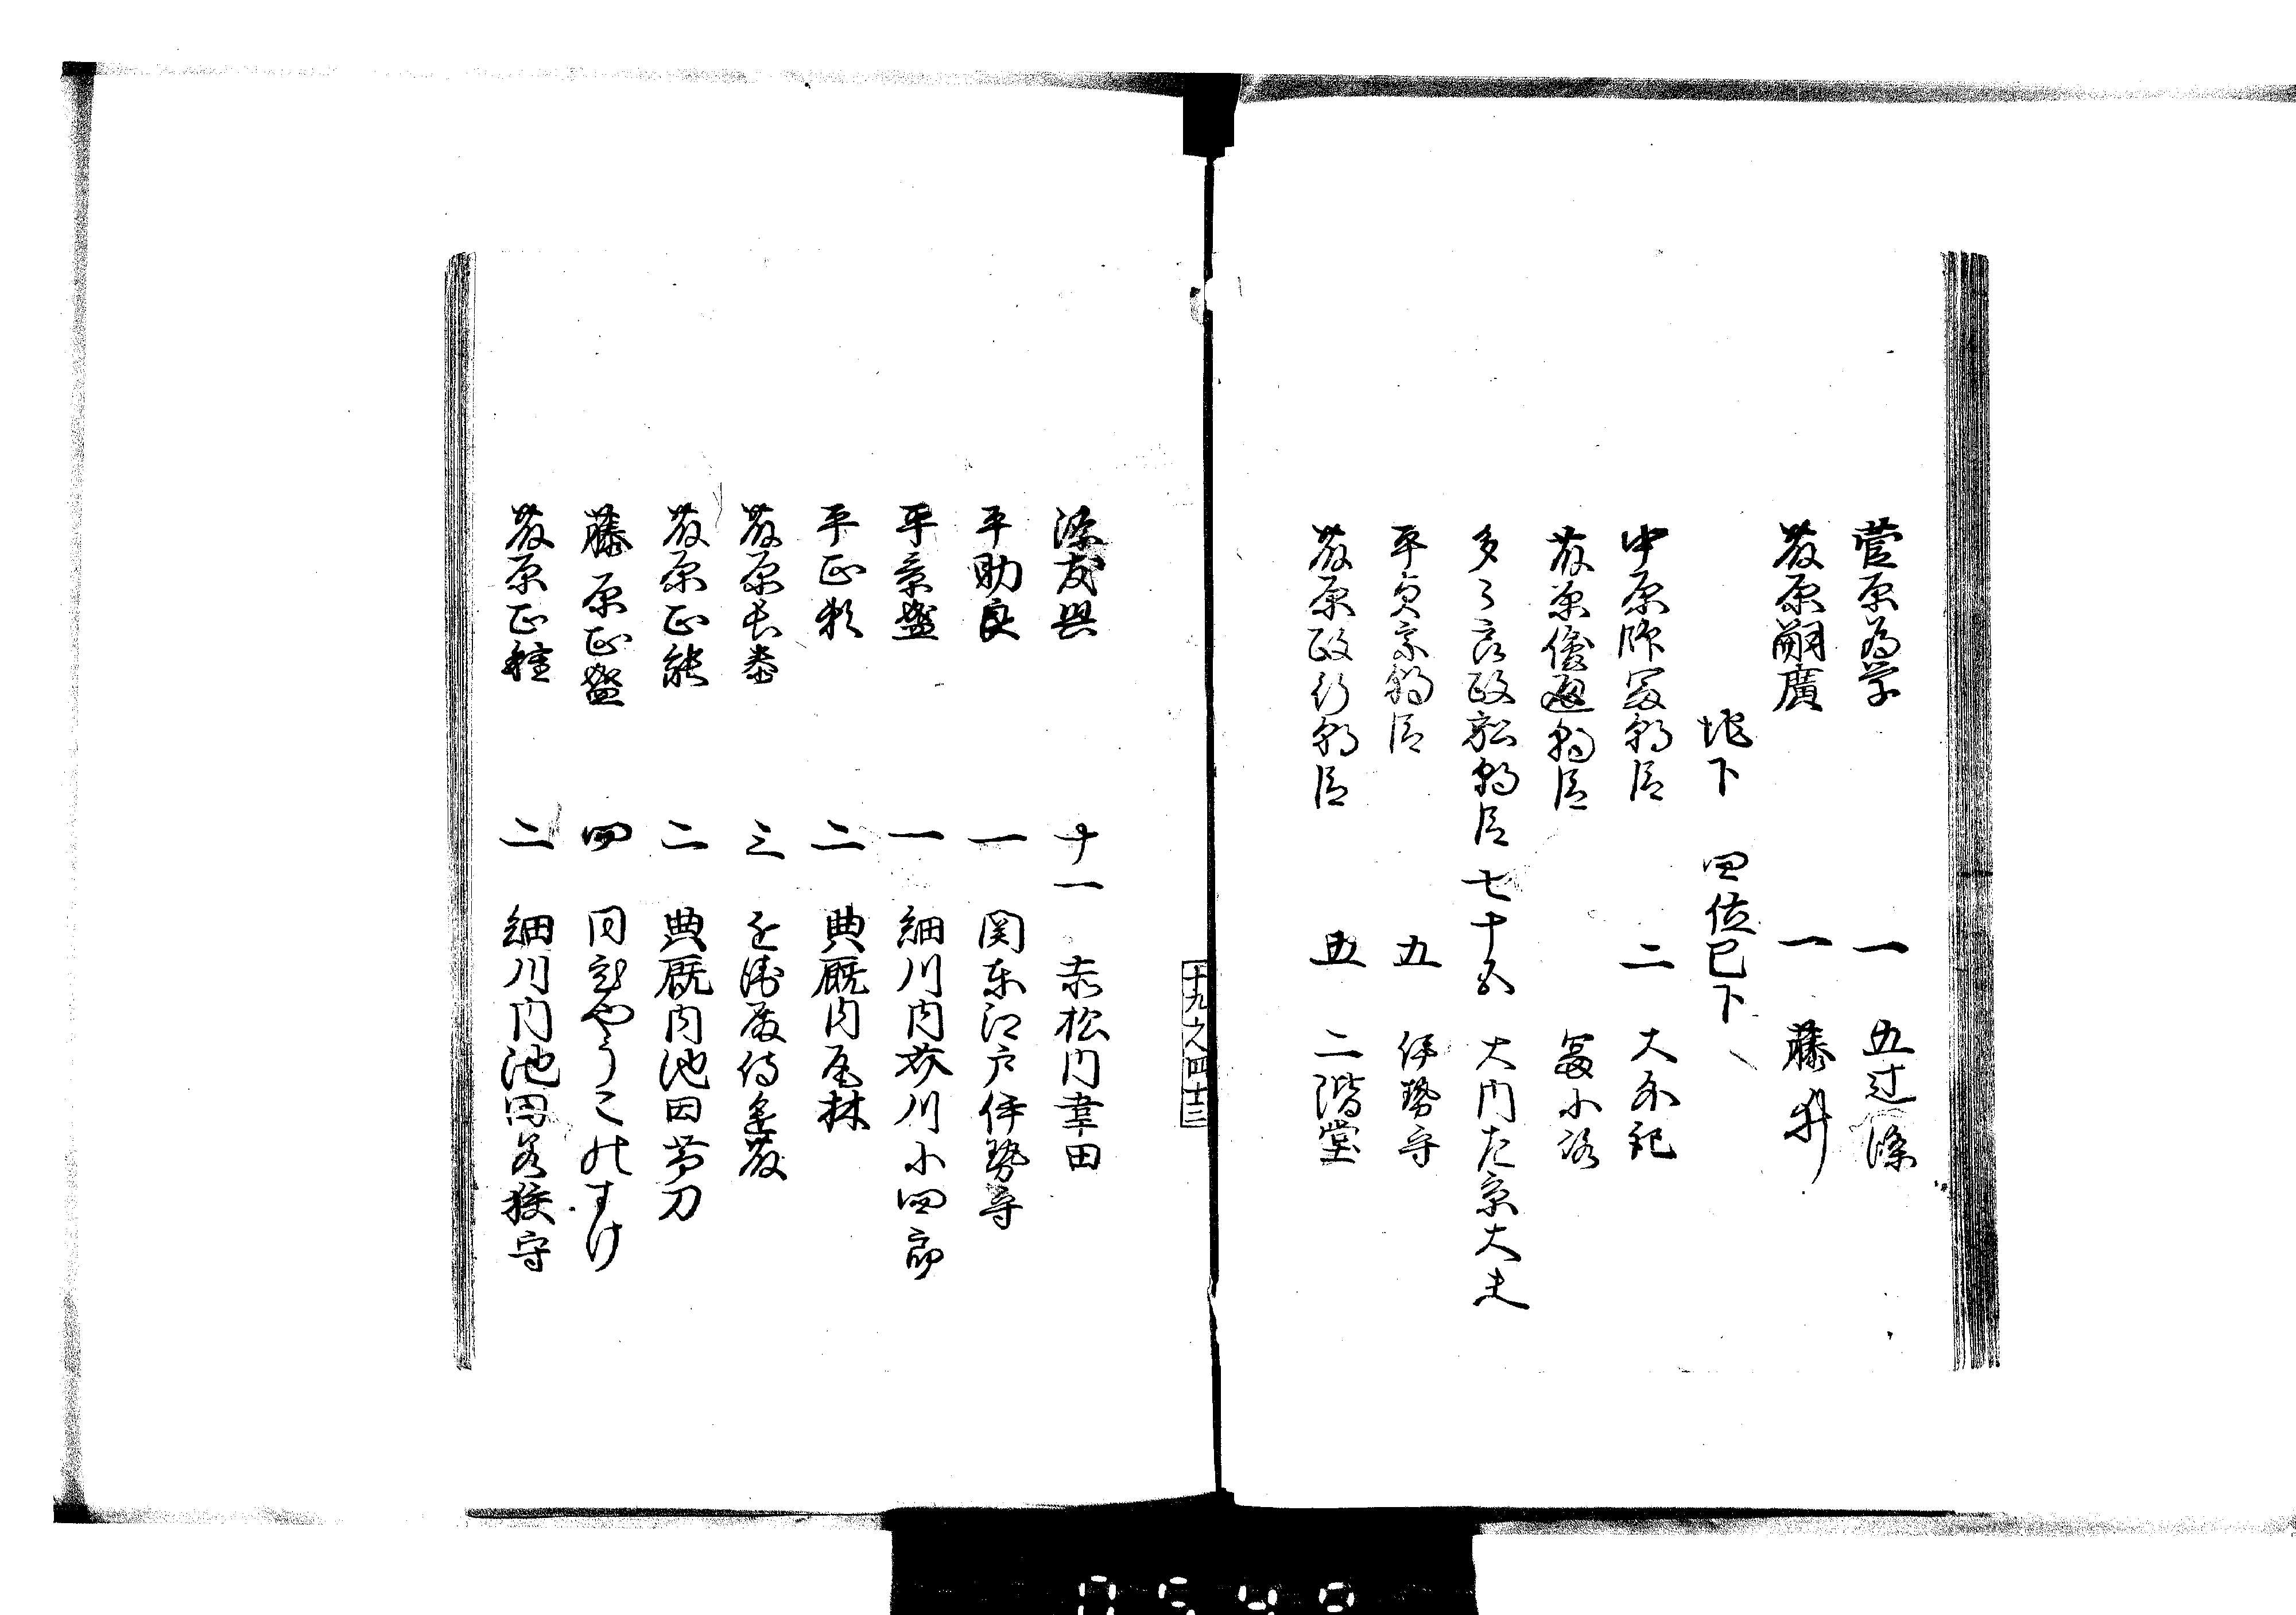 菅原為学　一　五辻條
藤原嗣廣　一　藤井
地下　四位已下
中原師富朝臣　二　大外記
藤原俊通朝臣　富小路
多々良政弘朝臣　七十五　大内左京大夫
平貞宗朝臣　五　伊勢守
藤原政行朝臣　五　二階堂
十九之四十三
源友興　十一　赤松門葦田
平助良　一　関東江戸伊勢守
平章盛　一　細川内芥川小四郎
平正　二　典厩内尾林
藤原長泰　三　近衛殿侍進藤
藤原正能　二　典厩内池田帯刀
藤原正盛　四　同 やうこのすけ
藤原正種　二　細川内池田若狭守